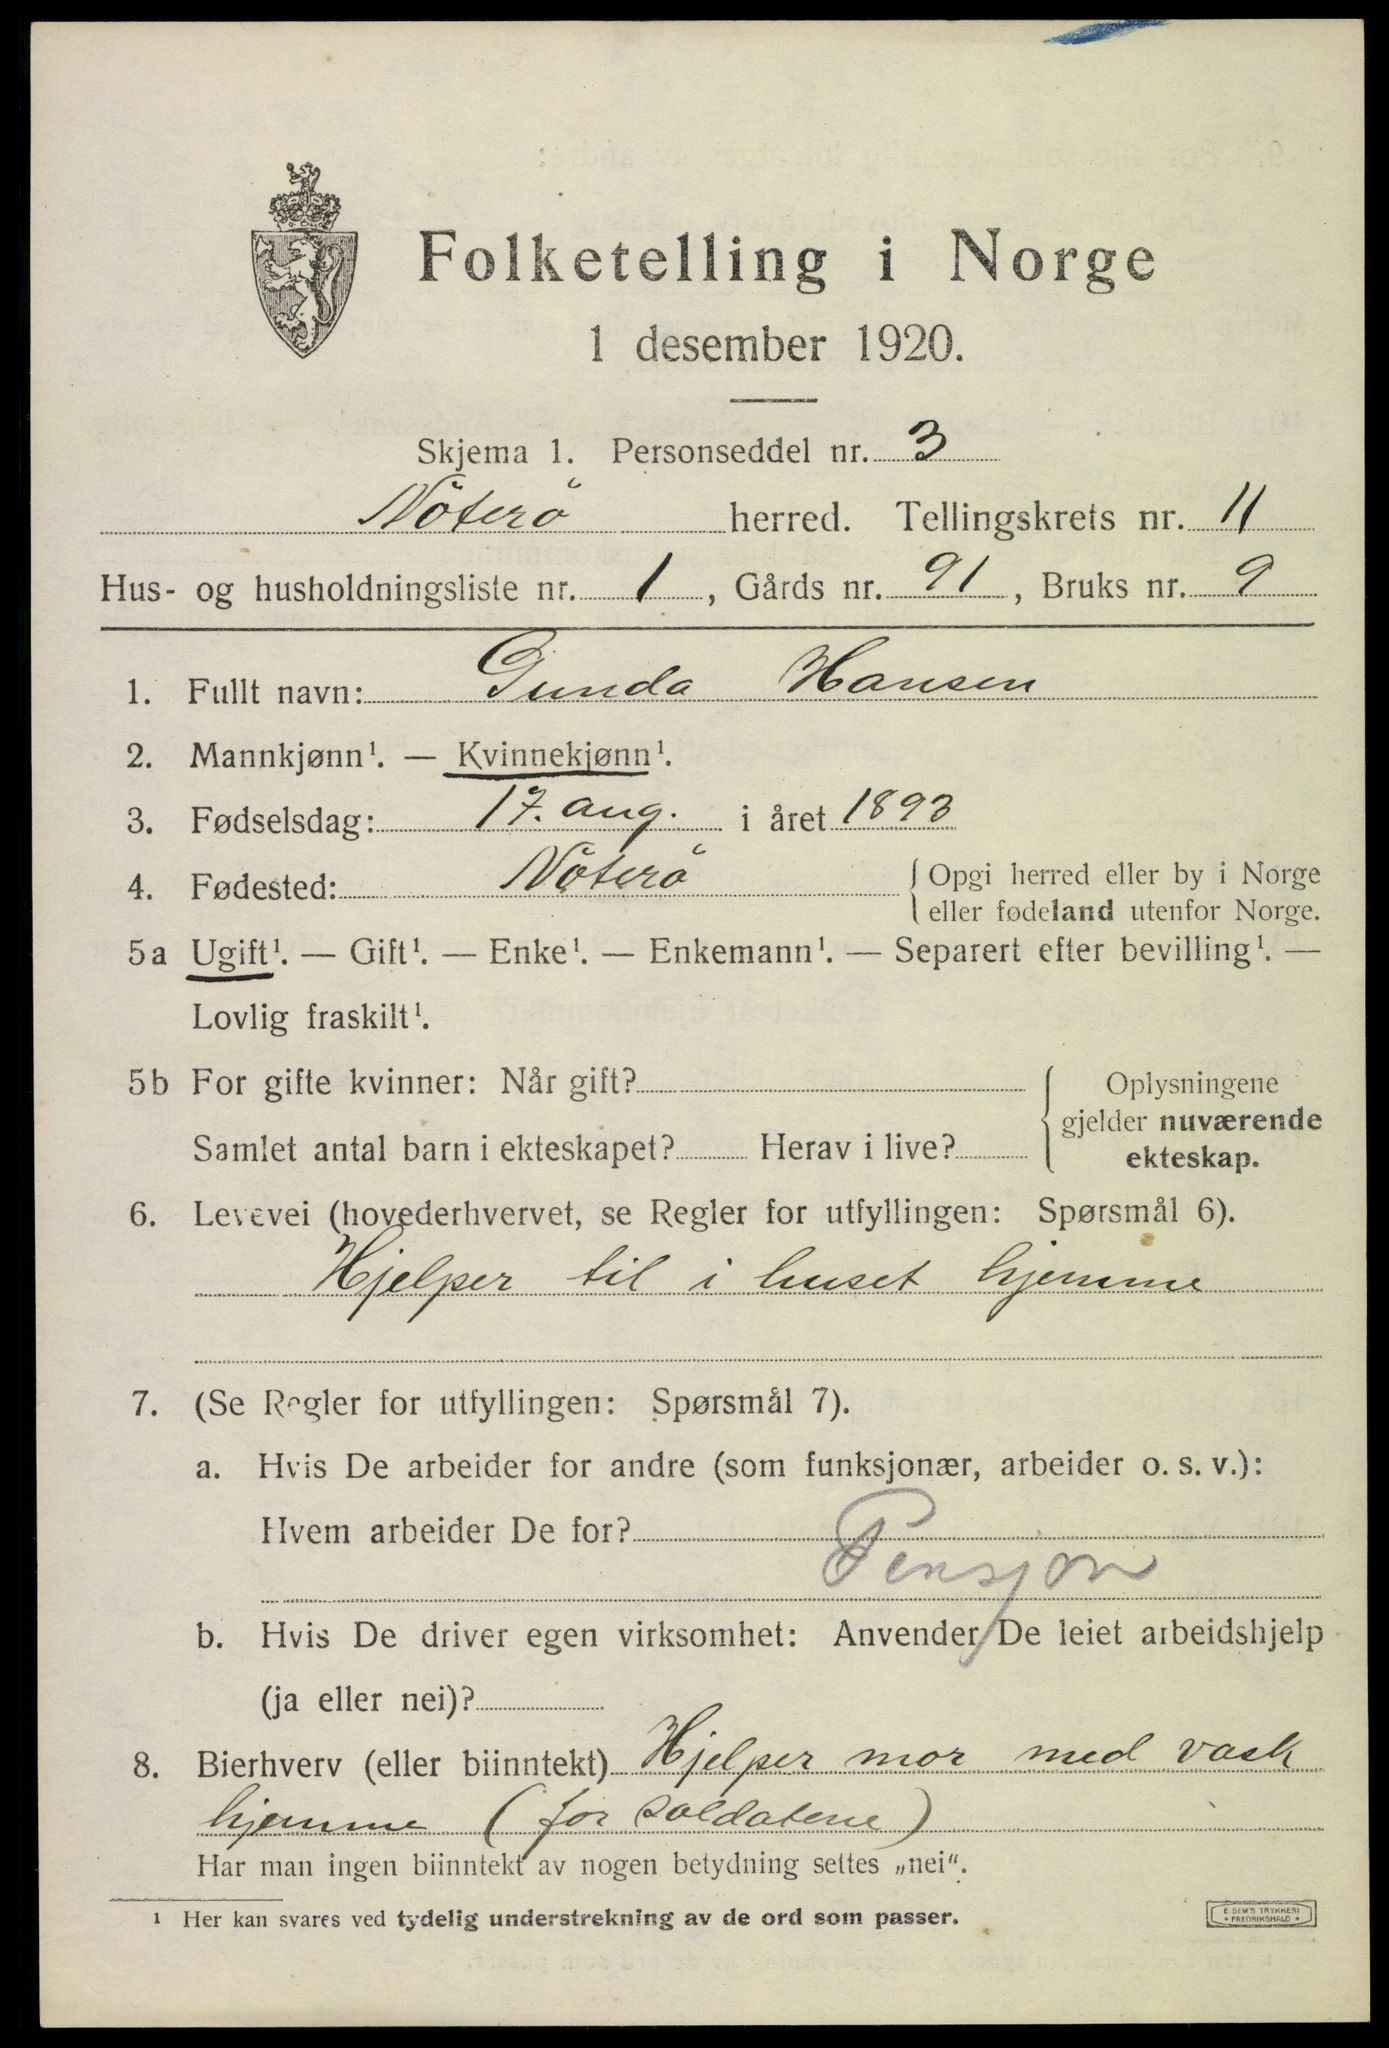 Folketelling i Norge
1 desember 1920.
Skjema 1. Personseddel nr. 3
Nöterö herred. Tellingskrets nr. 11
Hus- og husholdningsliste nr. 1, Gårds nr. 91, Bruks nr. 9
1. Fullt navn: Gunda Hansen
2. Mannkjønn¹. — Kvinnekjønn¹.
3. Fødselsdag: 17. aug. i året 1893
4. Fødested: Nöterö { Opgi herred eller by i Norge
eller fødeland utenfor Norge.
5a Ugift¹. — Gift¹. — Enke¹. — Enkemann¹. — Separert efter bevilling¹. —
Lovlig fraskilt¹.
5b For gifte kvinner: Når gift? { Oplysningene
gjelder nuværende
Samlet antal barn i ekteskapet? Herav i live? ekteskap.
6. Levevei (hovederhvervet, se Regler for utfyllingen: Spørsmål 6).
Hjelper til i huset hjemme
7. (Se Regler for utfyllingen: Spørsmål 7).
a. Hvis De arbeider for andre (som funksjonær, arbeider o. s. v.):
Hvem arbeider De for?
Pensjon
b. Hvis De driver egen virksomhet: Anvender De leiet arbeidshjelp
(ja eller nei)?
8. Bierhverv (eller biinntekt) Hjelper mor med vask
hjemme (for soldatene)
Har man ingen biinntekt av nogen betydning settes „nei“.
¹ Her kan svares ved tydelig understrekning av de ord som passer.
E. SEM'S TRYKKERI
* FREDRIKSHALD *